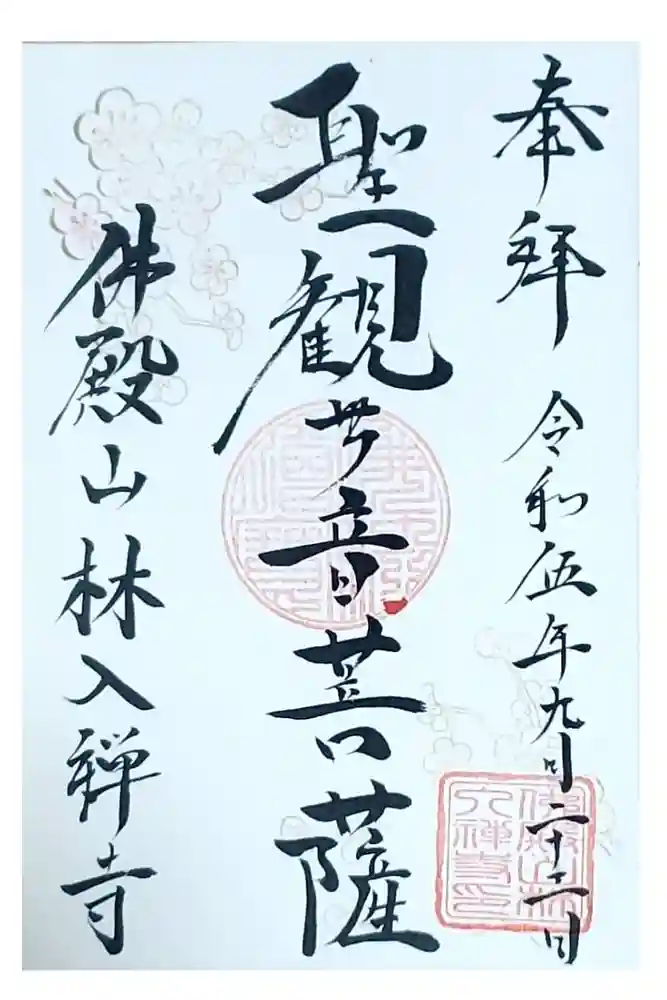 奉拝
令和伍年九月二十二日
聖観世音菩薩
佛殿山林入禅寺